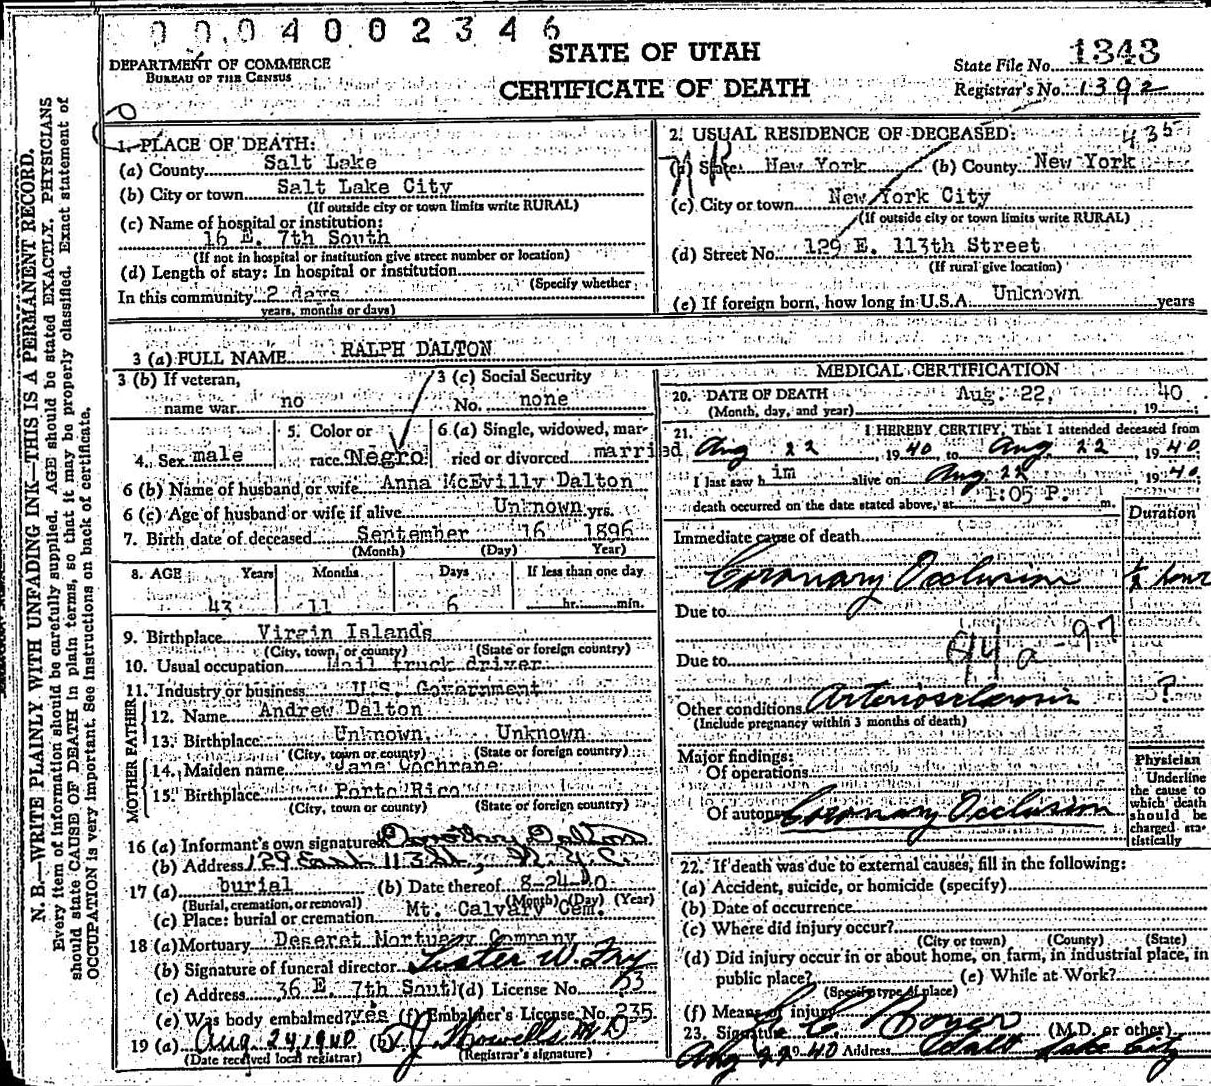 0004002346
STATE OF UTAH
CERTIFICATE OF DEATH
DEPARTMENT OF COMMERCE
BUREAU OF THE CENSUS
State File No. 1343
Registrar's No. 1392
N. B.—WRITE PLAINLY WITH UNFADING INK—THIS IS A PERMANENT RECORD.
Every item of information should be carefully supplied. AGE should be stated EXACTLY. PHYSICIANS
should state CAUSE OF DEATH in plain terms, so that it may be properly classified. Exact statement of
OCCUPATION is very important. See instructions on back of certificate.
1. PLACE OF DEATH:
(a) County Salt Lake
(b) City or town Salt Lake City
(If outside city or town limits write RURAL)
(c) Name of hospital or institution:
16 E. 7th South
(If not in hospital or institution give street number or location)
(d) Length of stay: In hospital or institution
(Specify whether
In this community 2 days
years, months or days)
2. USUAL RESIDENCE OF DECEASED: 435
(a) State New York (b) County New York
(c) City or town New York City
(If outside city or town limits write RURAL)
(d) Street No. 129 E. 113th Street
(If rural give location)
(e) If foreign born, how long in U.S.A. Unknown years
3 (a) FULL NAME RALPH DALTON
3 (b) If veteran,
name war no
3 (c) Social Security
No. none
4. Sex male
5. Color or
race Negro
6 (a) Single, widowed, mar-
ried or divorced married
6 (b) Name of husband or wife Anna McEvilly Dalton
6 (c) Age of husband or wife if alive Unknown yrs.
7. Birth date of deceased September 16 1896
(Month) (Day) Year)
8. AGE Years Months Days If less than one day
43 11 6 hr. min.
9. Birthplace Virgin Islands
(City, town, or county) (State or foreign country)
10. Usual occupation Mail truck driver
11. Industry or business U.S. Government
FATHER
12. Name Andrew Dalton
13. Birthplace Unknown Unknown
(City, town or county) (State or foreign country)
MOTHER
14. Maiden name Jane Cochrane
15. Birthplace Porto Rico
(City, town or county) (State or foreign country)
16 (a) Informant's own signature Dorothy Dalton
(b) Address 129 East 113 St., N.Y.C.
17 (a) burial (b) Date thereof 8-24-40
(Burial, cremation, or removal) (Month) (Day) (Year)
(c) Place: burial or cremation Mt. Calvary Cem.
18 (a) Mortuary Deseret Mortuary Company
(b) Signature of funeral director Lester W. Fry
(c) Address 36 E. 7th South (d) License No. 53
(e) Was body embalmed? yes (f) Embalmer's License No. 235
19 (a) Aug. 24 1940 (b) T J Howells M D
(Date received local registrar) (Registrar's signature)
MEDICAL CERTIFICATION
20. DATE OF DEATH Aug. 22, 19 40
(Month, day, and year)
21. I HEREBY CERTIFY, That I attended deceased from
Aug 22, 1940 to Aug 22, 1940
I last saw h im alive on Aug 22, 1940
death occurred on the date stated above, at 1:05 P. m.
Duration
Immediate cause of death
Coronary Occlusion 1/2 hour
Due to
94a -97
Due to
Other conditions Arteriosclerosis ?
(Include pregnancy within 3 months of death)
Major findings:
Of operations
Of autopsy Coronary Occlusion
Physician
Underline
the cause to
which death
should be
charged sta-
tistically
22. If death was due to external causes, fill in the following:
(a) Accident, suicide, or homicide (specify)
(b) Date of occurrence
(c) Where did injury occur?
(City or town) (County) (State)
(d) Did injury occur in or about home, on farm, in industrial place, in
public place? (e) While at Work?
(Specify type of place)
(f) Means of injury
23. Signature (M.D. or other)
Aug 22 1940 Address Salt Lake City